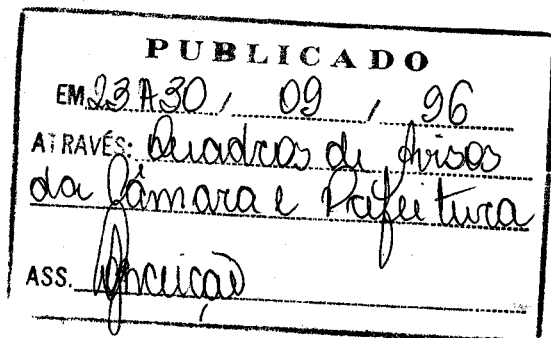 PUBLICADO
EM 23 A 30 / 09 / 96
ATRAVÉS: Quadros de Avisos
da Câmara e Prefeitura
ASS. Conceição